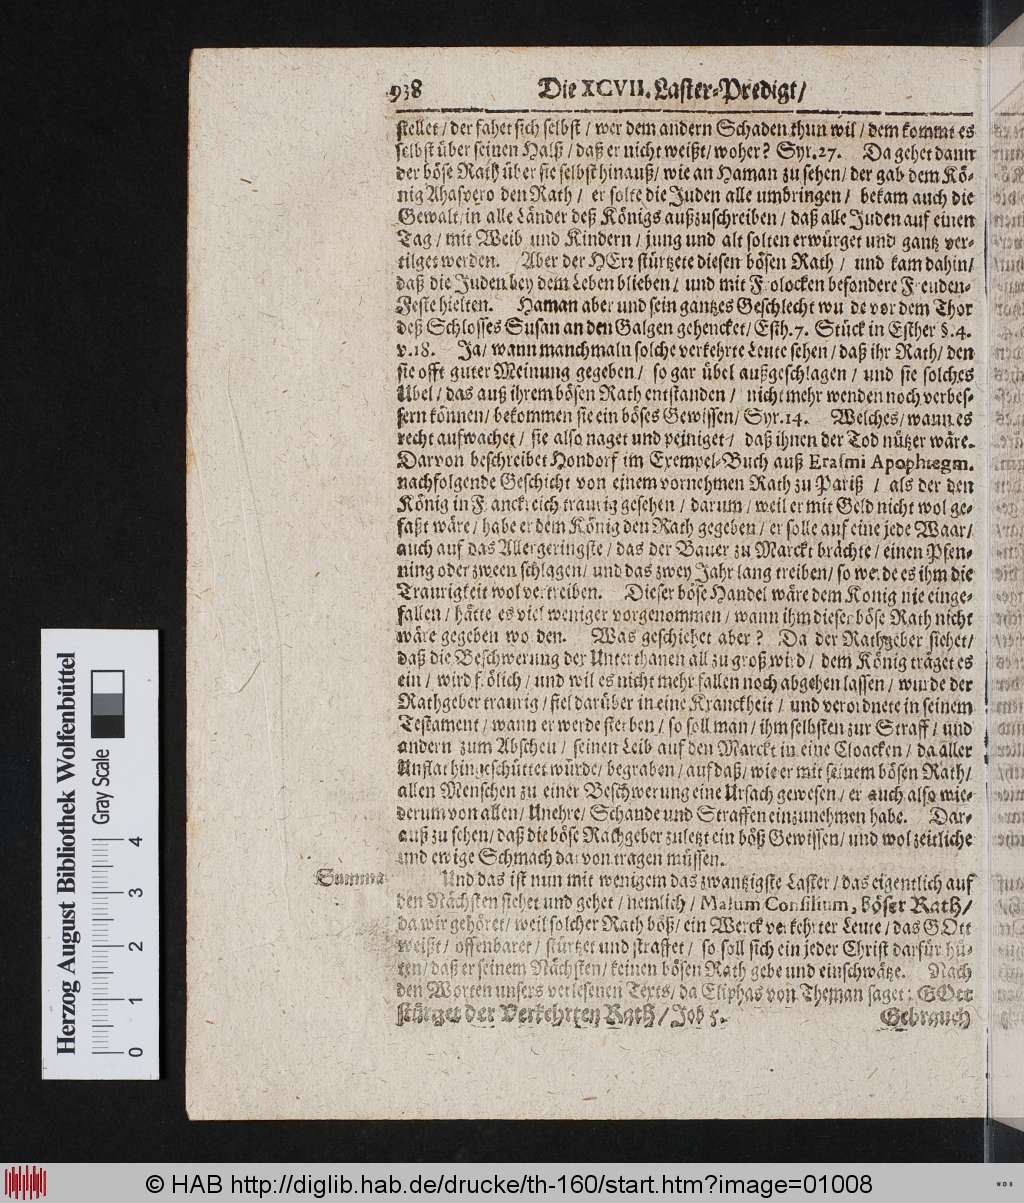 938 Die XCVII. Laster-Predigt/
stellet / der fahet sich selbst / wer dem andern Schaden thun wil / dem kommt es
selbst über seinen Halß / daß er nicht weißt / woher? Syr. 27. Da gehet dann
der böse Rath über sie selbst hinauß / wie an Haman zu sehen / der gab dem Kö-
nig Ahasvero den Rath / er solte die Juden alle umbringen / bekam auch die
Gewalt / in alle Länder deß Königs außzuschreiben / daß alle Juden auf einen
Tag / mit Weib und Kindern / jung und alt solten erwürget und gantz ver-
tilget werden. Aber der HErr stürtzete diesen bösen Rath / und kam dahin /
daß die Juden bey dem Leben blieben / und mit Frolocken besondere Freuden-
Feste hielten. Haman aber und sein gantzes Geschlecht wurde vor dem Thor
deß Schlosses Susan an den Galgen gehencket / Esth. 7. Stück in Esther §. 4.
v. 18. Ja / wann manchmaln solche verkehrte Leute sehen / daß ihr Rath / den
sie offt guter Meinung gegeben / so gar übel außgeschlagen / und sie solches
Übel / das auß ihrem bösen Rath entstanden / nicht mehr wenden noch verbes-
sern können / bekommen sie ein böses Gewissen / Syr. 14. Welches / wann es
recht aufwachet / sie also naget und peiniget / daß ihnen der Tod nützer wäre.
Darvon beschreibet Hondorf im Exempel-Buch auß Erasmi Apophtegm.
nachfolgende Geschicht von einem vornehmen Rath zu Pariß / als der den
König in Franckreich traurig gesehen / darum / weil er mit Geld nicht wol ge-
faßt wäre / habe er dem König den Rath gegeben / er solle auf eine jede Waar /
auch auf das Allergeringste / das der Bauer zu Marckt brächte / einen Pfen-
ning oder zween schlagen / und das zwey Jahr lang treiben / so werde es ihm die
Traurigkeit wol vertreiben. Dieser böse Handel wäre dem König nie einge-
fallen / hätte es viel weniger vorgenommen / wann ihm dieser böse Rath nicht
wäre gegeben worden. Was geschiehet aber? Da der Rathgeber siehet /
daß die Beschwerung der Unterthanen all zu groß wird / dem König träget es
ein / wird frölich / und wil es nicht mehr fallen noch abgehen lassen / wurde der
Rathgeber traurig / fiel darüber in eine Kranckheit / und verordnete in seinem
Testament / wann er werde sterben / so soll man / ihm selbsten zur Straff / und
andern zum Abscheu / seinen Leib auf den Marckt in eine Cloacken / da aller
Unflat hingeschüttet würde / begraben / auf daß / wie er mit seinem bösen Rath /
allen Menschen zu einer Beschwerung eine Ursach gewesen / er auch also wie-
derum von allen / Unehre / Schande und Straffen einzunehmen habe. Dar-
auß zu sehen / daß die böse Rathgeber zuletzt ein böß Gewissen / und wol zeitliche
und ewige Schmach darvon tragen müssen.
Summa Und das ist nun mit wenigem das zwantzigste Laster / das eigentlich auf
den Nächsten siehet und gehet / nemlich / Malum Consilium, böser Rath /
da wir gehöret / weil solcher Rath böß / ein Werck verkehrter Leute / das GOtt
weißt / offenbaret / stürtzet und straffet / so soll sich ein jeder Christ darfür hü-
ten / daß er seinem Nächsten / keinen bösen Rath gebe und einschwätze. Nach
den Worten unsers verlesenen Texts / da Eliphas von Theman saget: GOtt
stürtzet der Verkehrten Rath / Job 5. Gebrauch
Herzog August Bibliothek Wolfenbüttel
Gray Scale
0 1 2 3 4
© HAB http://diglib.hab.de/drucke/th-160/start.htm?image=01008